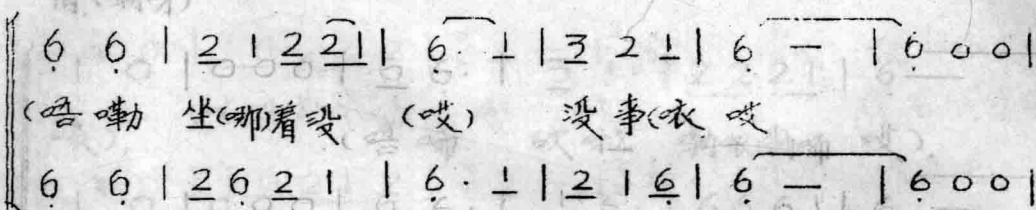 6̣ 6̣ | 2 1 2 21 | 6̣· 1 | 3 2 1 | 6̣ — | 6̣ 0 0 |
(唔嘞 坐(哪)着没 (哎) 没事(衣 哎
6̣ 6̣ | 2 6̣ 2 1 | 6̣· 1 | 2 1 6̣ | 6̣ — | 6̣ 0 0 |